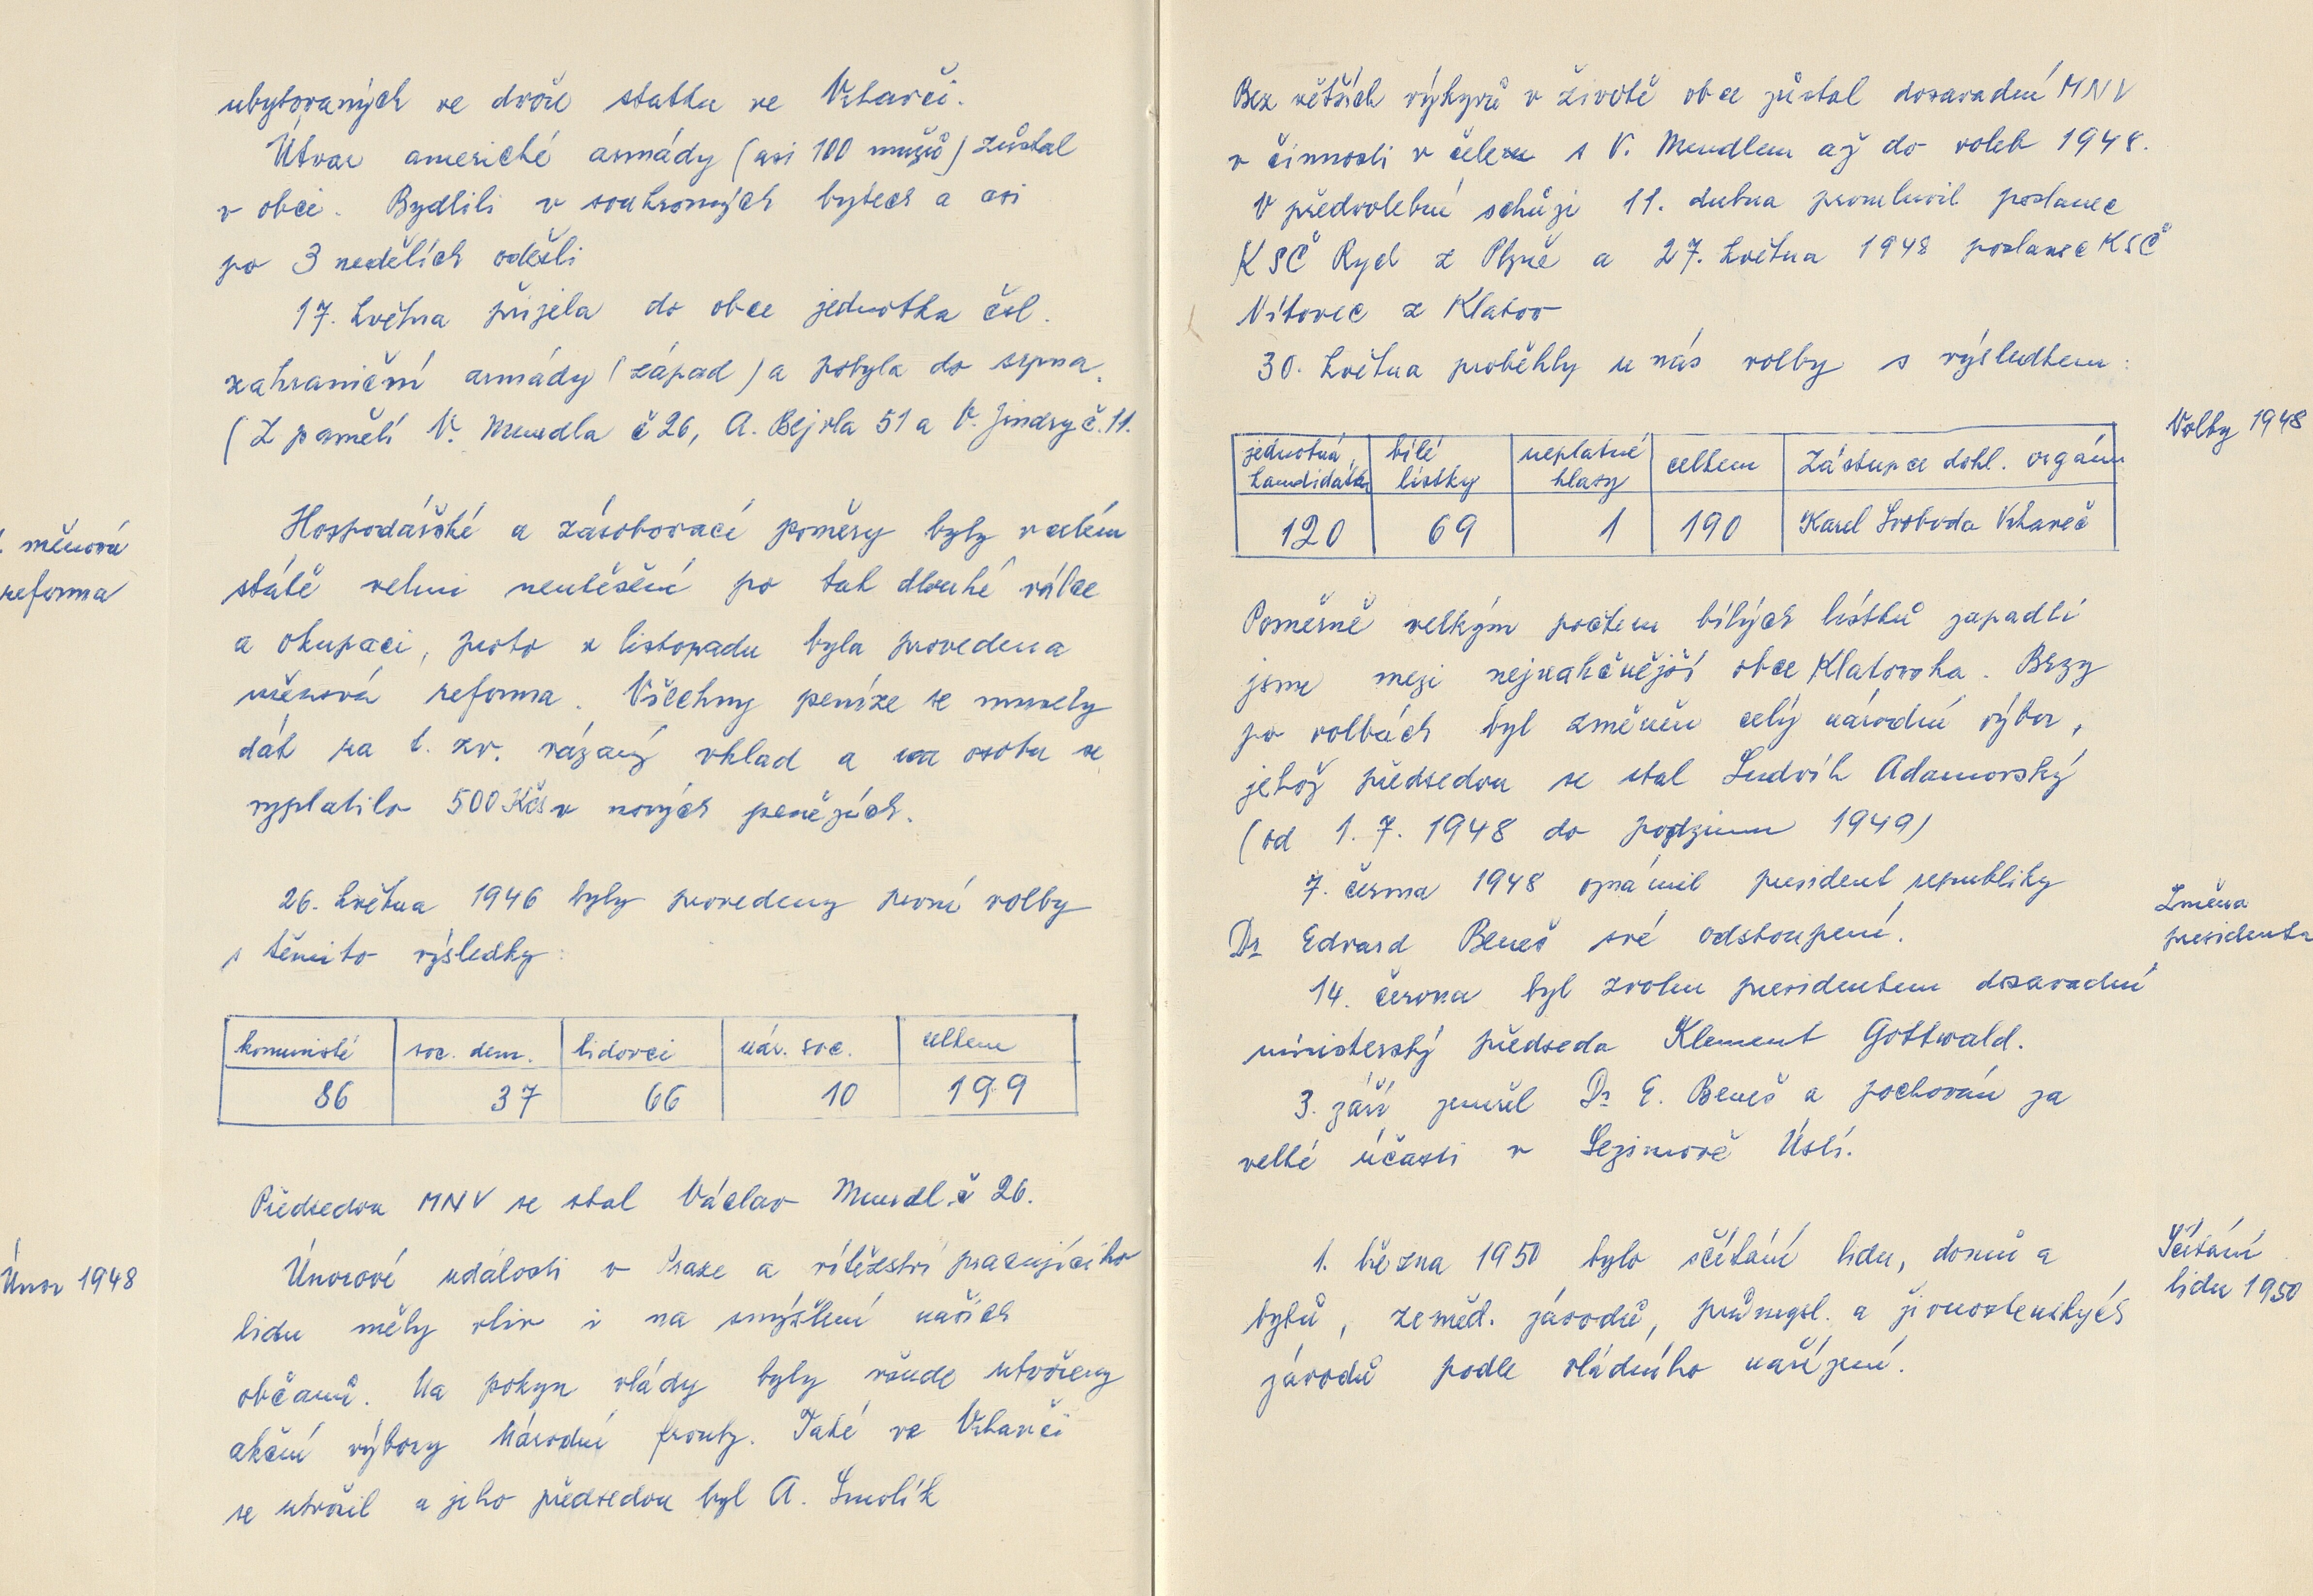 ubytovaných ve dvoře statku ve Vrhavči.
Útvar americké armády (asi 100 mužů) zůstal
v obci. Bydlili v soukromých bytech a asi
po 3 nedělích odešli
17. května přijela do obce jednotka čsl.
zahraniční armády (západ) a pobyla do srpna.
(Z paměti V. Mendla č 26, A. Bejvla 51 a V. Jindry č. 11.
. měnová
reforma
Hospodářské a zásobovací poměry byly v celém
státě velmi neutěšené po tak dlouhé válce
a okupaci, proto v listopadu byla provedena
měnová reforma. Všechny peníze se musely
dát na t. zv. vázaný vklad a na osobu se
vyplatilo 500 Kčs v nových penězích.
26. května 1946 byly provedeny první volby
s těmito výsledky:
komunisté soc. dem. lidovci nár. soc. celkem
86 37 66 10 199
Předsedou MNV se stal Václav Mendl č 26.
Únor 1948
Únorové události v Praze a vítězství pracujícího
lidu měly vliv i na smýšlení našich
občanů. Na pokyn vlády byly všude utvořeny
akční výbory Národní fronty. Také ve Vrhavči
se utvořil a jeho předsedou byl A. Smolík
Bez větších výkyvů v životě obce zůstal dosavadní MNV
v činnosti v čele s V. Mendlem až do voleb 1948.
V předvolební schůzi 11. dubna promluvil poslanec
KSČ Ryd z Plzně a 27. května 1948 poslanec KSČ
Vítovec z Klatov
30. května proběhly u nás volby s výsledkem:
Volby 1948
jednotná kandidátka bílé lístky neplatné hlasy celkem Zástupce dohl. orgánu
120 69 1 190 Karel Svoboda Vrhaveč
Poměrně velkým počtem bílých lístků zapadli
jsme mezi nejzahčnější obce Klatovska. Brzy
po volbách byl změněn celý národní výbor,
jehož předsedou se stal Ludvík Adamovský
(od 1. 7. 1948 do podzimu 1949)
7. června 1948 oznámil president republiky
Změna
presidenta
Dr Edvard Beneš své odstoupení.
14. června byl zvolen presidentem dosavadní
ministerský předseda Klement Gottwald.
3. září zemřel Dr E. Beneš a pochován za
velké účasti v Sezimově Ústí.
Sčítání
lidu 1950
1. března 1950 bylo sčítání lidu, domů a
bytů, zeměd. závodů, průmysl. a živnostenských
závodů podle vládního nařízení.